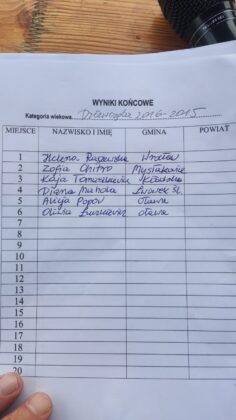 WYNIKI KOŃCOWE
Kategoria wiekowa Dziewczęta 2016-2015
MIEJSCE NAZWISKO I IMIĘ GMINA POWIAT
1 Helena Wrocław
2 Zofia Chitro Mysłakowice
3 Kaja Tomaszkiewicz
4 Diana Mahola Lwówek Śl.
5 Alicja Popov Oława
6 Oliwia Oława
7
8
9
10
11
12
13
14
15
16
17
18
19
20